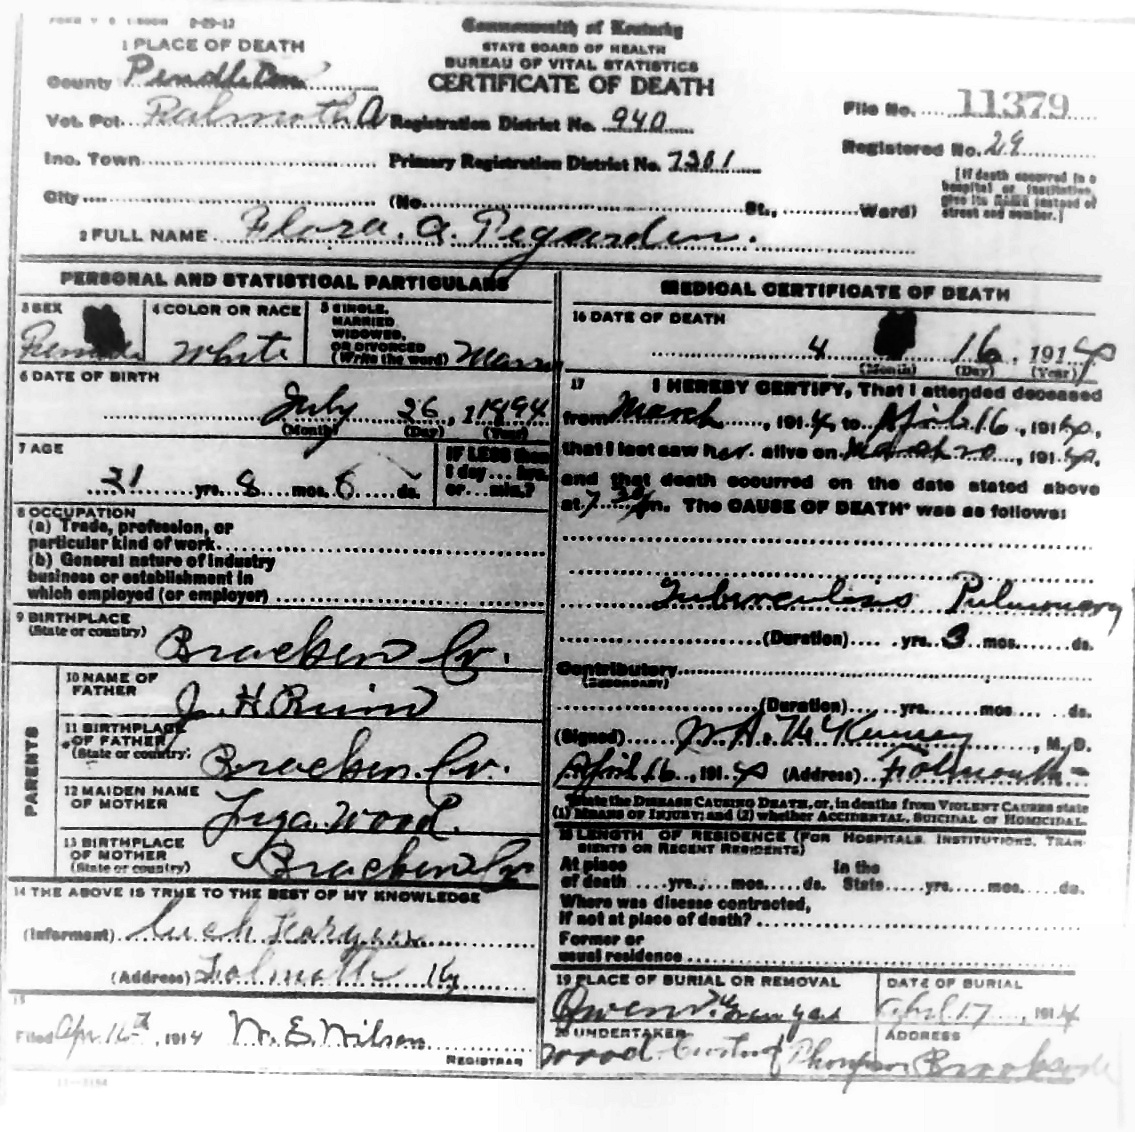 Commonwealth of Kentucky
STATE BOARD OF HEALTH
BUREAU OF VITAL STATISTICS
CERTIFICATE OF DEATH
1 PLACE OF DEATH
County Pendleton
Vot. Pct. Falmouth A Registration District No. 940
File No. 11379
Inc. Town Primary Registration District No. 7381
Registered No. 29
City (No. St., Ward)
[If death occurred in a
hospital or institution,
give its NAME instead of
street and number.]
2 FULL NAME Flora. A. Pegarden.
PERSONAL AND STATISTICAL PARTICULARS
3 SEX
Female
4 COLOR OR RACE
White
5 SINGLE,
MARRIED
WIDOWED,
OR DIVORCED
(Write the word)
6 DATE OF BIRTH
July 26, 1894
(Month) (Day) (Year)
7 AGE
21 yrs. 8 mos. 6 ds.
IF LESS than
1 day... hrs.
or... min.?
8 OCCUPATION
(a) Trade, profession, or
particular kind of work
(b) General nature of industry
business or establishment in
which employed (or employer)
9 BIRTHPLACE
(State or country) Bracken Co.
PARENTS
10 NAME OF
FATHER J. H.
11 BIRTHPLACE
OF FATHER
(State or country) Bracken. Co.
12 MAIDEN NAME
OF MOTHER Wood.
13 BIRTHPLACE
OF MOTHER
(State or country) Bracken Co
14 THE ABOVE IS TRUE TO THE BEST OF MY KNOWLEDGE
(Informant)
(Address) Falmouth Ky
15
Filed Apr 16th, 1914 W. E. Wilson
REGISTRAR
MEDICAL CERTIFICATE OF DEATH
16 DATE OF DEATH
4 16, 1914
(Month) (Day) (Year)
17 I HEREBY CERTIFY, That I attended deceased
from March, 1914, to April 16, 1914,
that I last saw her alive on March 20, 1914,
and that death occurred on the date stated above
at 7 30 m. The CAUSE OF DEATH* was as follows:
Tuberculosis Pulmonary
(Duration) yrs. 3 mos. ds.
Contributory
(SECONDARY)
(Duration) yrs. mos. ds.
(Signed) McKenney, M. D.
April 16, 1914 (Address) Falmouth
*State the DISEASE CAUSING DEATH, or, in deaths from VIOLENT CAUSES state
(1) MEANS OF INJURY; and (2) whether ACCIDENTAL, SUICIDAL OR HOMICIDAL.
18 LENGTH OF RESIDENCE (FOR HOSPITALS, INSTITUTIONS, TRAN-
SIENTS OR RECENT RESIDENTS)
At place In the
of death yrs. mos. ds. State yrs. mos. ds.
Where was disease contracted,
if not at place of death?
Former or
usual residence
19 PLACE OF BURIAL OR REMOVAL
DATE OF BURIAL
April 17, 1914
20 UNDERTAKER
ADDRESS
Wood Thompson Brooksville